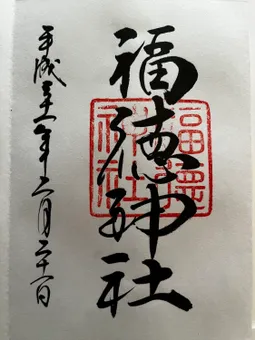 福徳神社
福德
神社
平成三十一年二月二十一日